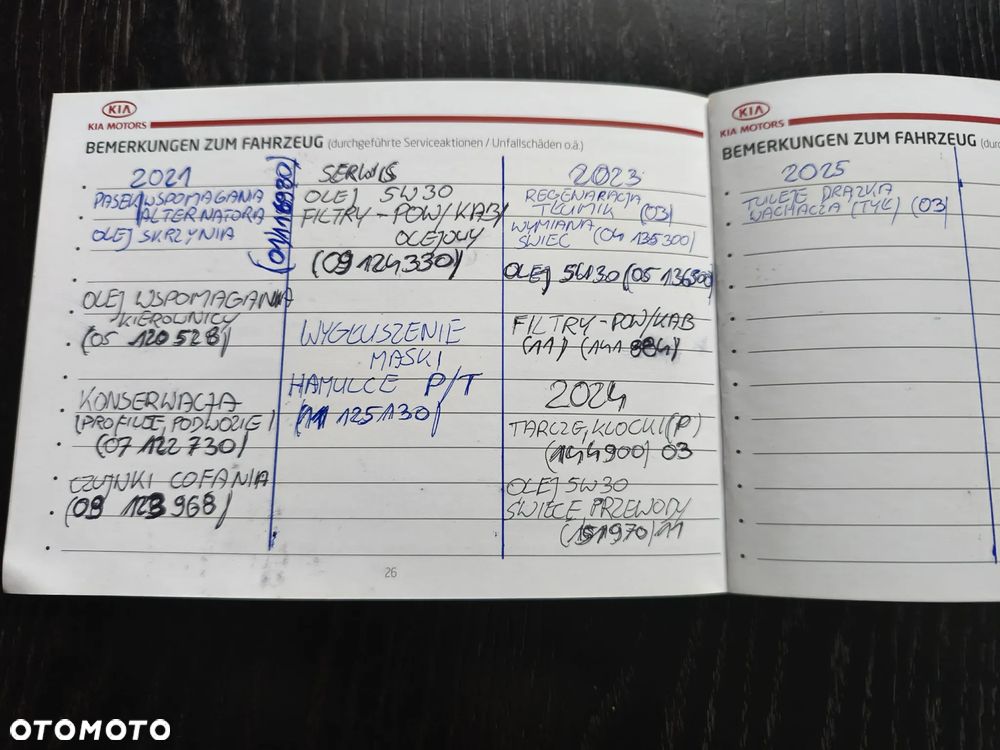 KIA
KIA MOTORS
BEMERKUNGEN ZUM FAHRZEUG (durchgeführte Serviceaktionen / Unfallschäden o.ä.)
2021
PASEK WSPOMAGANIA
ALTERNATORA
OLEJ SKRZYNIA
(01/116980)
OLEJ WSPOMAGANIA
KIEROWNICY
(05 120528)
KONSERWACJA
(PROFILE, PODWOZIE)
(07 122730)
CZUJNKI COFANIA
(09 123968)
SERWIS
OLEJ 5W30
FILTRY-POW/KAB/
OLEJOWY
(09 124330)
WYGŁUSZENIE
MASKI
HAMULCE P/T
(11 125130)
2023
REGENARACJA
TŁUMIK (03)
WYMIANA
ŚWIEC (04 135300)
OLEJ 5W30 (05 136300)
FILTRY-POW/KAB
(11) (141 884)
2024
TARCZE, KLOCKI (P)
(144900) 03
OLEJ 5W30
ŚWIECE, PRZEWODY
(151970) 11
26
KIA
KIA MOTORS
BEMERKUNGEN ZUM FAHRZEUG (dur
2025
TULEJE DRĄŻKA
WACHACZA (TYŁ) (03)
OTOMOTO